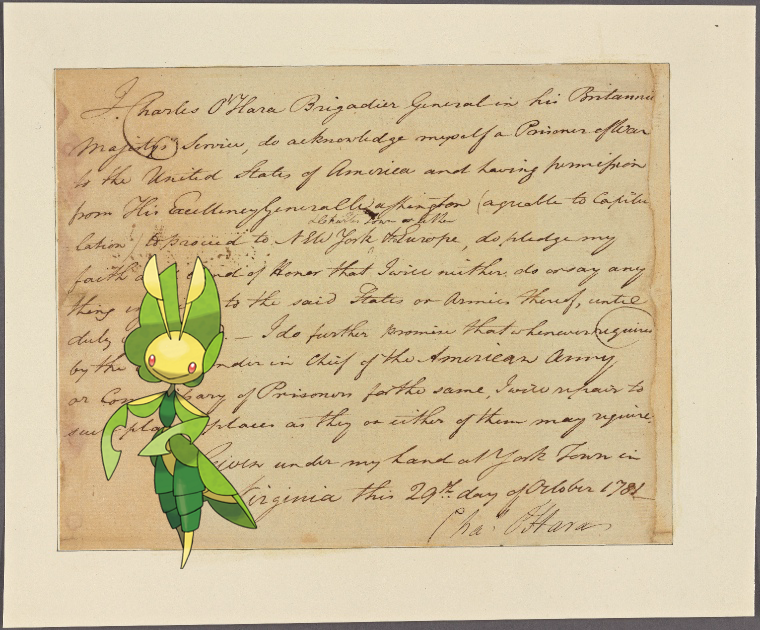 I Charles O'Hara Brigadier General in his Britannic
Majestys Service, do acknowledge myself a Prisoner of War
to the United States of America and having permission
from His Excellency General Washington (agreable to Capitu
lation) to proceed to New York & Europe, do pledge my
faith and of Honor that I will neither do or say any
thing to the said States or Armies thereof, until
duly — I do further promise that whenever required
by the in Chief of the American Army
or of Prisoners for the same, I will repair to
such places as they or either of them may require.
Given under my hand at York Town in
Virginia this 29th day of October 1781
Chas O'Hara